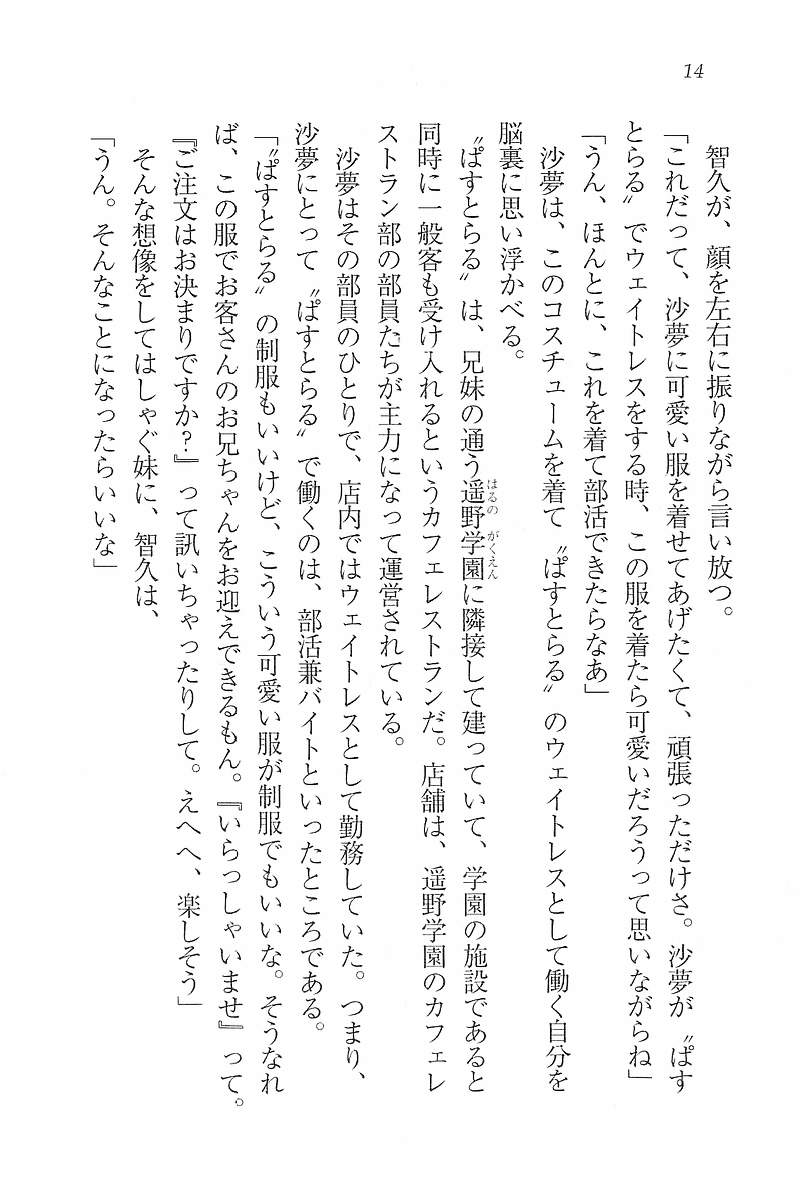 14
智久が、顔を左右に振りながら言い放つ。
「これだって、沙夢に可愛い服を着せてあげたくて、頑張っただけさ。沙夢が〝ぱす
とらる〟でウェイトレスをする時、この服を着たら可愛いだろうって思いながらね」
「うん、ほんとに、これを着て部活できたらなあ」
沙夢は、このコスチュームを着て〝ぱすとらる〟のウェイトレスとして働く自分を
脳裏に思い浮かべる。
〝ぱすとらる〟は、兄妹の通う遥野学園に隣接して建っていて、学園の施設であると
はるの がくえん
同時に一般客も受け入れるというカフェレストランだ。店舗は、遥野学園のカフェレ
ストラン部の部員たちが主力になって運営されている。
沙夢はその部員のひとりで、店内ではウェイトレスとして勤務していた。つまり、
沙夢にとって〝ぱすとらる〟で働くのは、部活兼バイトといったところである。
「〝ぱすとらる〟の制服もいいけど、こういう可愛い服が制服でもいいな。そうなれ
ば、この服でお客さんのお兄ちゃんをお迎えできるもん。『いらっしゃいませ』って。
『ご注文はお決まりですか?』って訊いちゃったりして。えへへ、楽しそう」
そんな想像をしてはしゃぐ妹に、智久は、
「うん。そんなことになったらいいな」